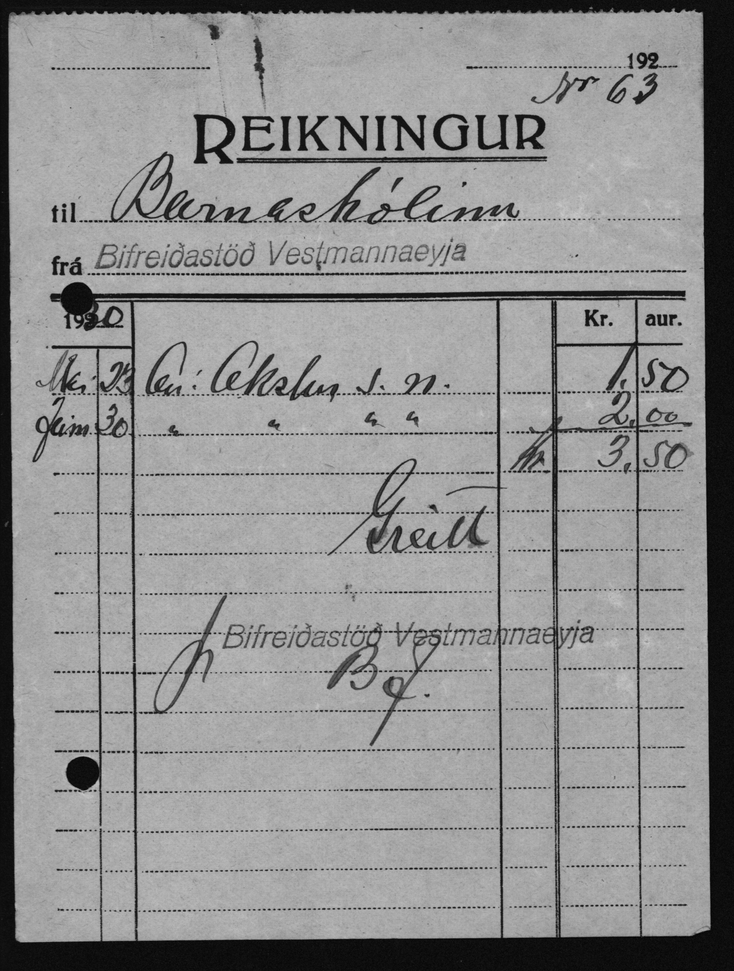 192
Nr 63
REIKNINGUR
til Barnaskólinn
frá Bifreiðastöð Vestmannaeyja
1930 Kr. aur.
Mai 23 An: Akstur s. n. 1.50
Júni 30 " " " " 2.00
kr 3.50
Greitt
pr Bifreiðastöð Vestmannaeyja
B J.